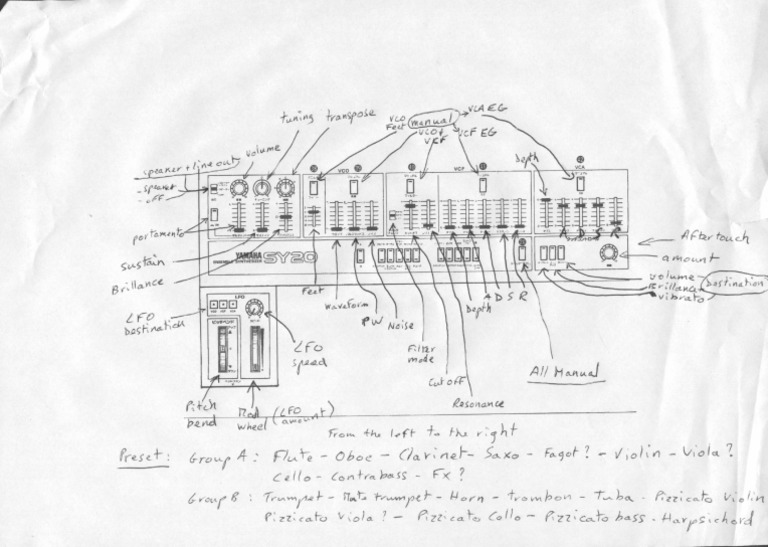 tuning transpose
VCO Feet
manual
VCA EG
VCO + VCF
VCF EG
volume
speaker + line out
- speaker
- off
Depth
VCO
VCF
VCA
A D S R
portamento
sustain
Brillance
YAMAHA SY20
Aftertouch
amount
volume
Brillance
vibrato
Destination
Feet
waveform
PW
Noise
Filter mode
Cut off
Resonance
Depth
A D S R
All Manual
LFO
LFO Destination
LFO speed
Pitch bend
Mod wheel (LFO amount)
From the left to the right
Preset : Group A : Flute - Oboe - Clarinet - Saxo - Fagot ? - Violin - Viola ?
Cello - Contrabass - Fx ?
Group B : Trumpet - Mute trumpet - Horn - trombon - Tuba - Pizzicato Violin
Pizzicato Viola ? - Pizzicato Cello - Pizzicato bass - Harpsichord